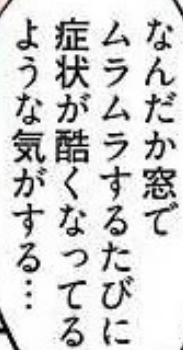 なんだか窓で
ムラムラするたびに
症状が酷くなってる
ような気がする…